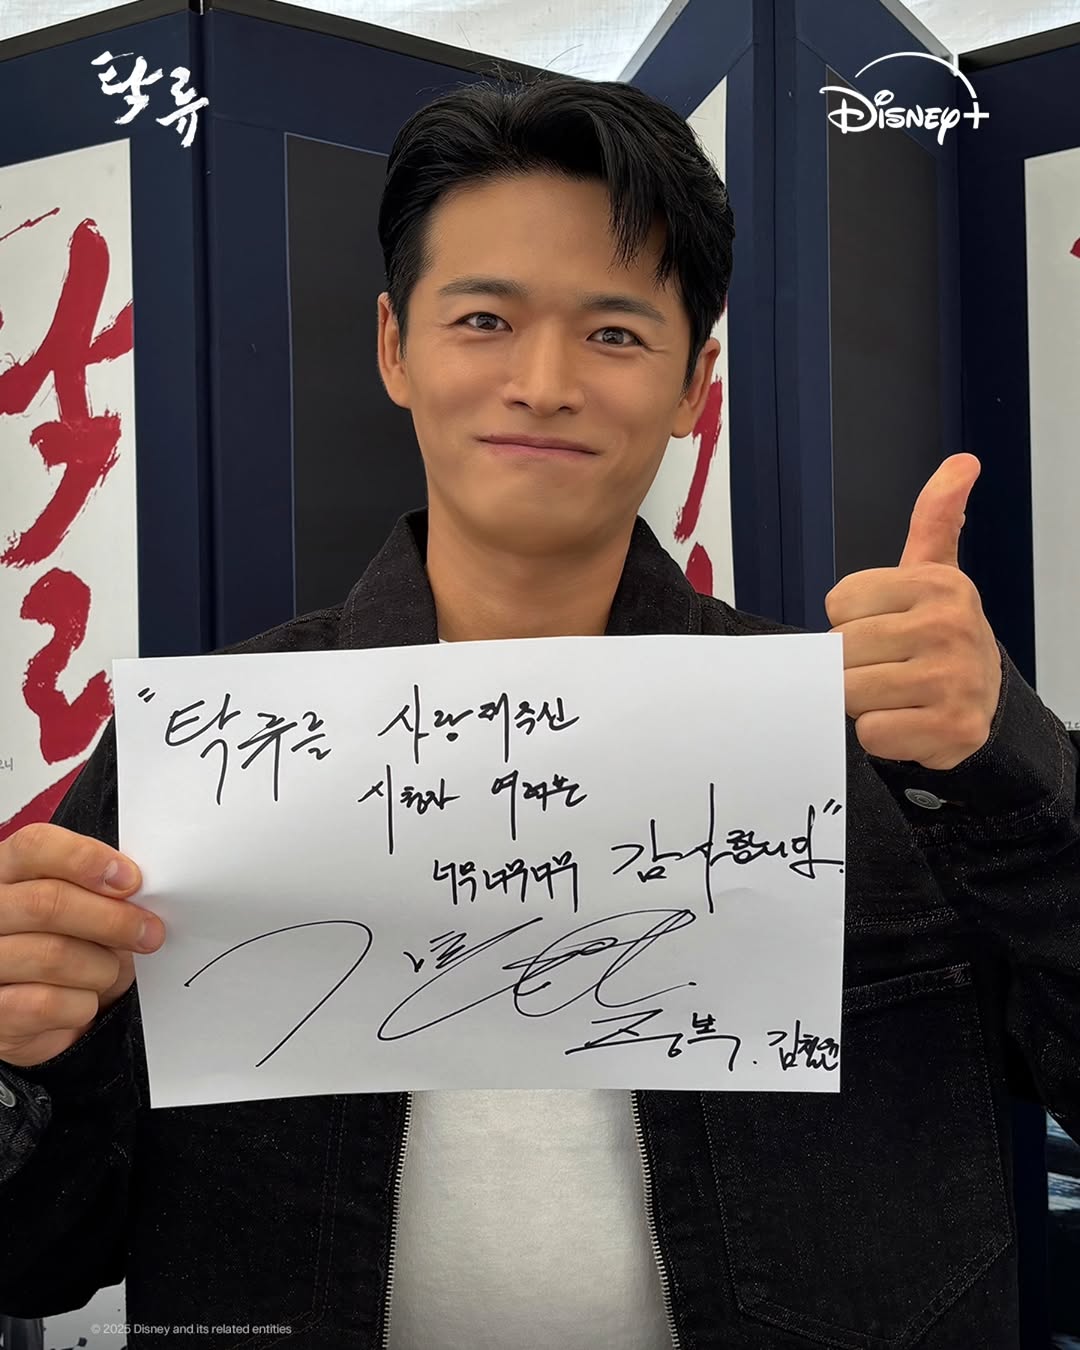 탁류
Disney+
탁
류
"탁류를 사랑해주신
시청자 여러분
너무너무너무 감사합니다."
종복. 김철윤
© 2025 Disney and its related entities